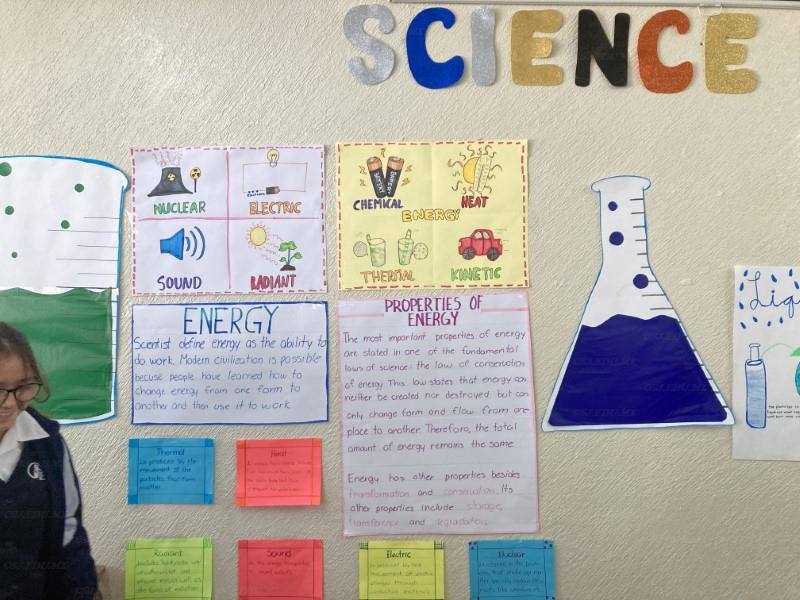 SCIENCE
NUCLEAR
ELECTRIC
SOUND
RADIANT
CHEMICAL
HEAT
ENERGY
THERMAL
KINETIC
ENERGY
Scientist define energy as the ability to
do work. Modern civilization is possible
becuse people have learned how to
change energy from one form to
another and then use it to work
PROPERTIES OF
ENERGY
The most important properties of energy
are stated in one of the fundamental
laws of science: the law of conservation
of energy. This law states that energy can
neither be created nor destroyed but can
only change form and flow from one
place to another Therefore, the total
amount of energy remains the same
Energy has other properties besides
transformation and conservation. Its
other properties include storage,
transference and degradation.
Liq
Thermal
is produce by the
movement of the
particles that form
matter.
Heat
Radiant
Sound
Electric
Nuclear